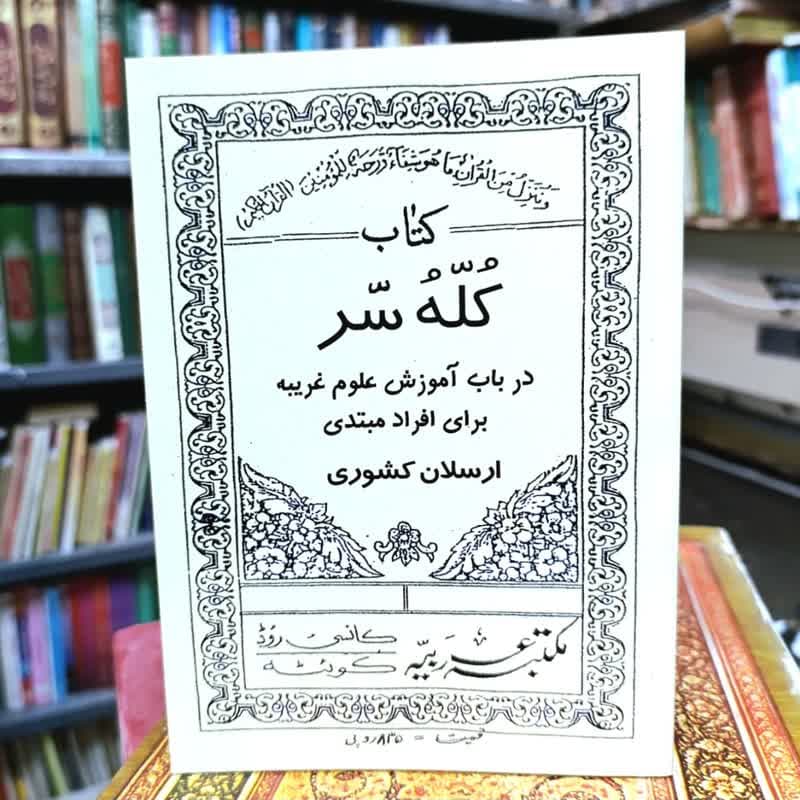 وَنُنَزِّلُ مِنَ الْقُرْاٰنِ مَا هُوَ شِفَآءٌ وَّرَحْمَةٌ لِّلْمُؤْمِنِيْنَ (القرآن الحکیم)
کتاب
کُلّهُ سّر
در باب آموزش علوم غریبه
برای افراد مبتدی
ارسلان کشوری
مکتبہ عربیّہ
کانسی روڈ
کوئٹہ
قیمت = ۸۳۵ روپی